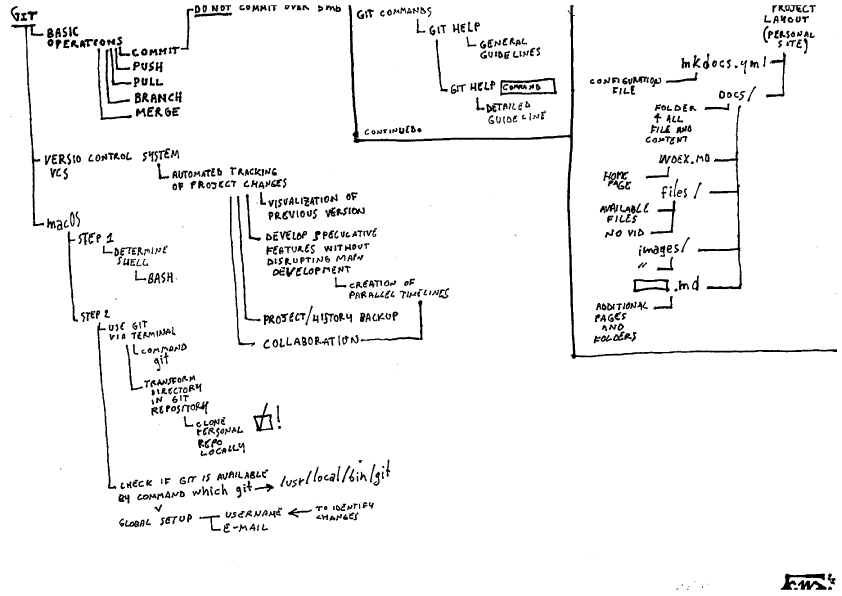 GIT
BASIC
OPERATIONS
COMMIT
DO NOT COMMIT OVER 5mb
PUSH
PULL
BRANCH
MERGE
VERSIO CONTROL SYSTEM
VCS
AUTOMATED TRACKING
OF PROJECT CHANGES
VISUALIZATION OF
PREVIOUS VERSION
DEVELOP SPECULATIVE
FEATURES WITHOUT
DISRUPTING MAIN
DEVELOPMENT
CREATION OF
PARALLEL TIMELINES
PROJECT/HISTORY BACKUP
COLLABORATION
macOS
STEP 1
DETERMINE
SHELL
BASH
STEP 2
USE GIT
VIA TERMINAL
COMMAND
git
TRANSFORM
DIRECTORY
IN GIT
REPOSITORY
CLONE
PERSONAL
REPO
LOCALLY
!
CHECK IF GIT IS AVAILABLE
BY COMMAND which git → /usr/local/bin/git
GLOBAL SETUP
USERNAME ← TO IDENTIFY
CHANGES
E-MAIL
GIT COMMANDS
GIT HELP
GENERAL
GUIDELINES
GIT HELP COMMAND
DETAILED
GUIDELINE
CONTINUED.
PROJECT
LAYOUT
(PERSONAL
SITE)
mkdocs.yml
CONFIGURATION
FILE
DOCS/
FOLDER
4 ALL
FILE AND
CONTENT
INDEX.MD
HOME
PAGE
files/
AVAILABLE
FILES
NO VID
images/
"
.md
ADDITIONAL
PAGES
AND
FOLDERS